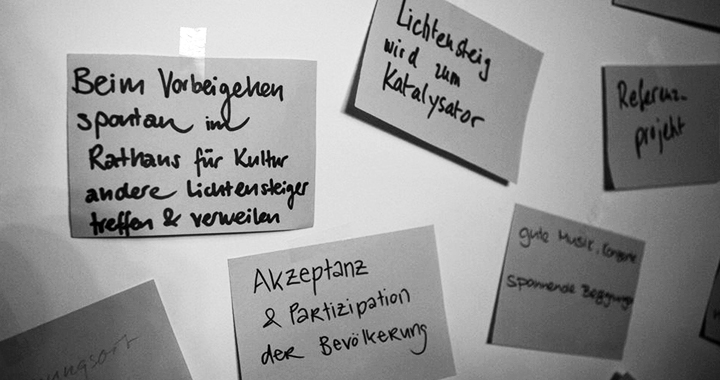 Beim Vorbeigehen
spontan im
Rathaus für Kultur
andere Lichtensteiger
treffen & verweilen
Lichtensteig
wird zum
Katalysator
Referenz-
projekt
Akzeptanz
& Partizipation
der Bevölkerung
gute Musik, Konzerte
spannende